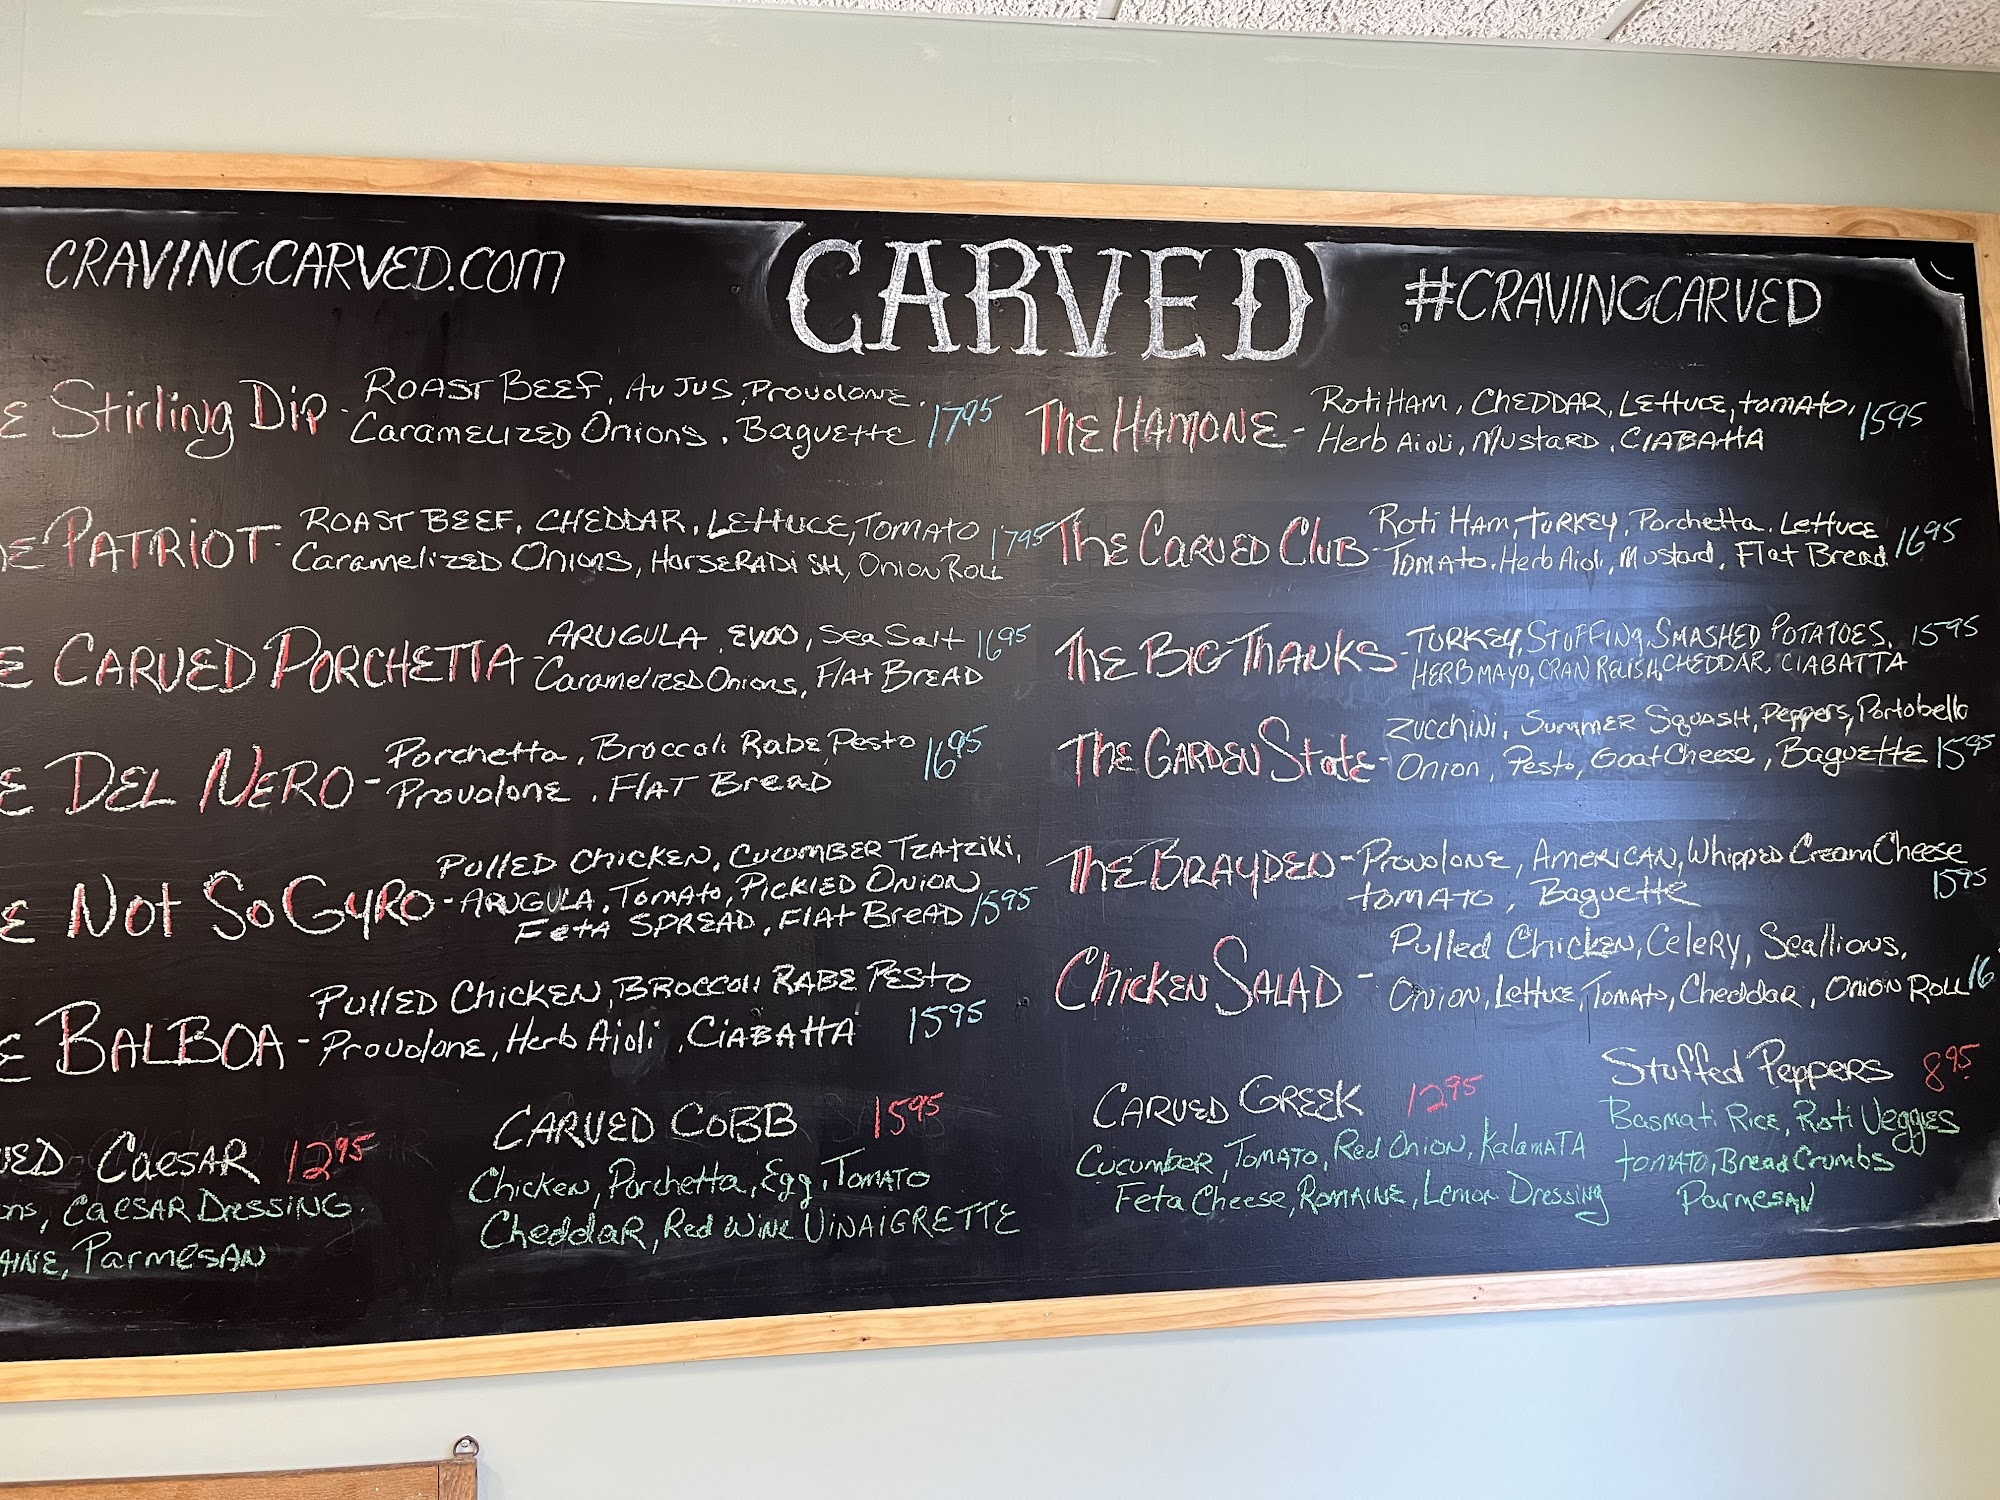 CRAVINGCARVED.COM
CARVED
#CRAVINGCARVED
Stirling Dip - Roast Beef, Au Jus, Provolone, 17 95
Caramelized Onions, Baguette
Patriot - Roast Beef, Cheddar, Lettuce, Tomato 17 95
Caramelized Onions, Horseradish, Onion Roll
Carved Porchetta - Arugula, Evoo, Sea Salt 16 95
Caramelized Onions, Flat Bread
Del Nero - Porchetta, Broccoli Rabe, Pesto 16 95
Provolone, Flat Bread
Not So Gyro - Pulled Chicken, Cucumber Tzatziki,
Arugula, Tomato, Pickled Onion
Feta Spread, Flat Bread 15 95
Balboa - Pulled Chicken, Broccoli Rabe Pesto
Provolone, Herb Aioli, Ciabatta 15 95
The Hamone - Roti Ham, Cheddar, Lettuce, Tomato, 15 95
Herb Aioli, Mustard, Ciabatta
The Carved Club - Roti Ham, Turkey, Porchetta, Lettuce 16 95
Tomato, Herb Aioli, Mustard, Flat Bread
The Big Thanks - Turkey, Stuffing, Smashed Potatoes, 15 95
Herb Mayo, Cran Relish, Cheddar, Ciabatta
The Garden State - Zucchini, Summer Squash, Peppers, Portobello
Onion, Pesto, Goat Cheese, Baguette 15 95
The Brayden - Provolone, American, Whipped Cream Cheese
Tomato, Baguette 15 95
Chicken Salad - Pulled Chicken, Celery, Scallions,
Onion, Lettuce, Tomato, Cheddar, Onion Roll 16
Caesar 12 95
Caesar Dressing
Parmesan
Carved Cobb 15 95
Chicken, Porchetta, Egg, Tomato
Cheddar, Red Wine Vinaigrette
Carved Greek 12 95
Cucumber, Tomato, Red Onion, Kalamata
Feta Cheese, Romaine, Lemon Dressing
Stuffed Peppers 8 95
Basmati Rice, Roti Veggies
Tomato, Bread Crumbs
Parmesan